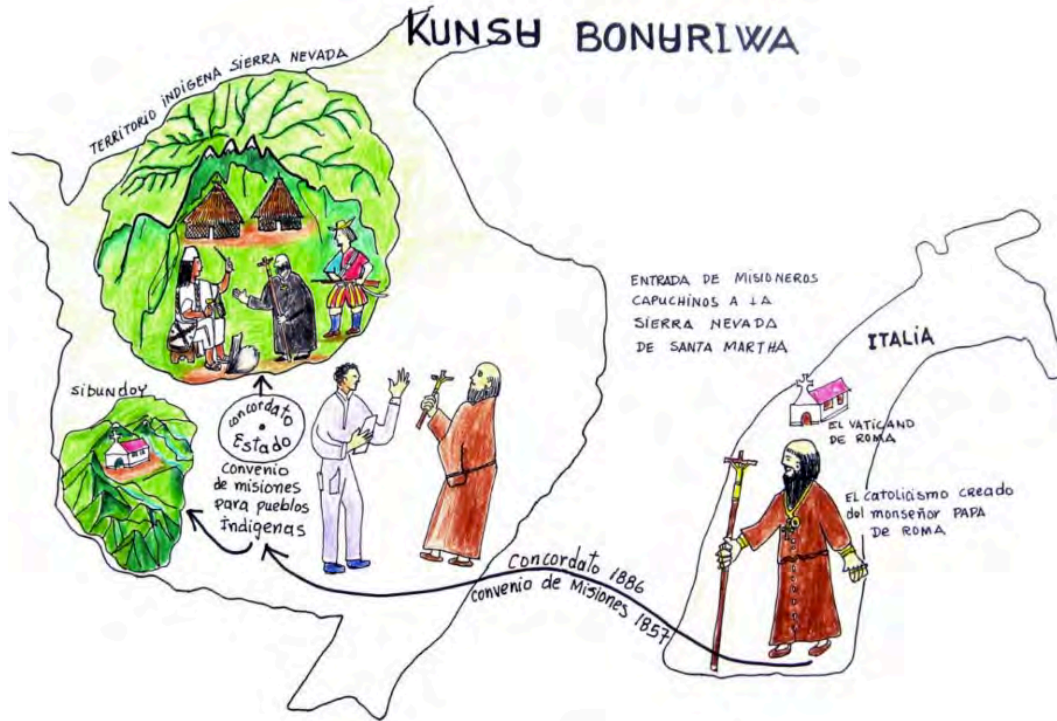 KUNSU BONURIWA
TERRITORIO INDÍGENA SIERRA NEVADA
ENTRADA DE MISIONEROS
CAPUCHINOS A LA
SIERRA NEVADA
DE SANTA MARTHA
ITALIA
EL VATICANO
DE ROMA
EL catolicismo creado
del monseñor PAPA
DE ROMA
Sibundoy
concordato
Estado
convenio
de misiones
para pueblos
Indígenas
Concordato 1886
convenio de Misiones 1857